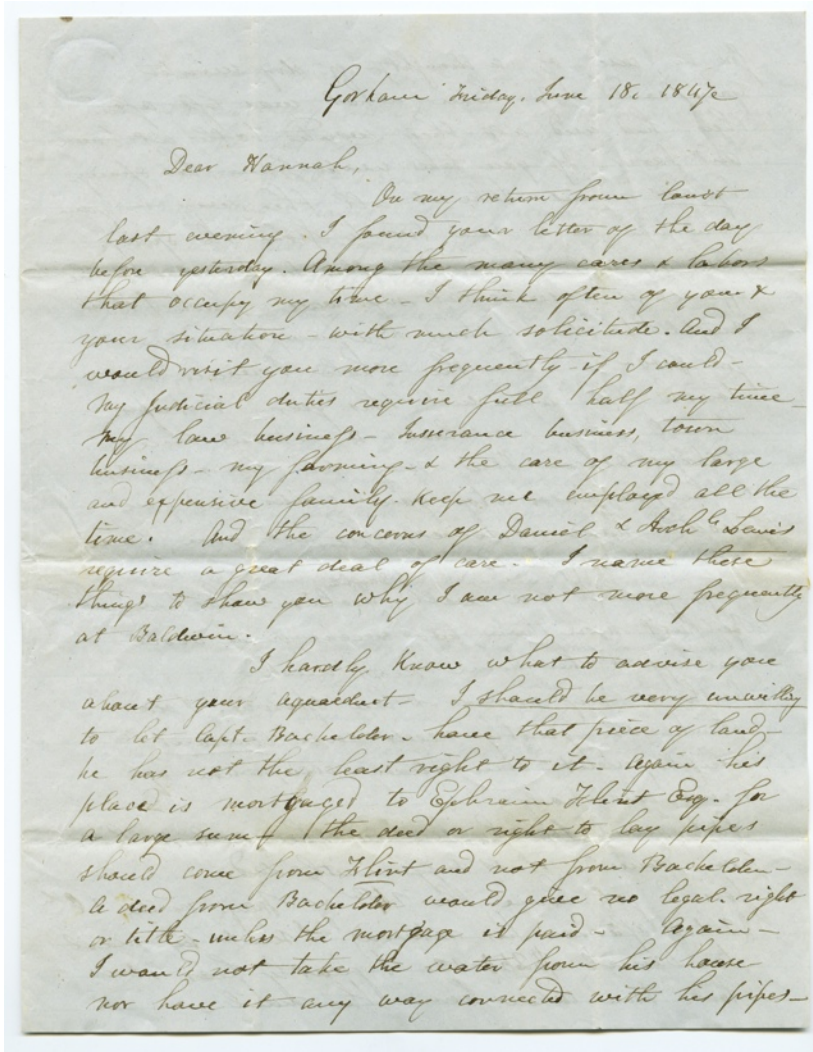 Gorham Friday. June 18. 1847
Dear Hannah,
On my return from Court
last evening. I found your letter of the day
before yesterday. Among the many cares & labors
that occupy my time – I think often of you &
your situation – with much solicitude. And I
would visit you more frequently if I could –
My Judicial duties require full half my time –
My law business – Insurance business, town
business – my farming – & the care of my large
and expensive family. Keep me employed all the
time. And the concerns of Daniel & Lewis
require a great deal of care. I name these
things to show you why I am not more frequently
at Baldwin.
I hardly Know what to advise you
about your aquaeduct – I should be very unwilling
to let Capt. Bachelder – have that piece of land –
he has not the least right to it – Again his
place is mortgaged to Ephraim Flint Esq. for
a large sum – the deed or right to lay pipes
should come from Flint and not from Bachelder –
A deed from Bachelder would give no legal right
or title – unless the mortgage is paid – Again –
I would not take the water from his house
nor have it any way connected with his pipes –